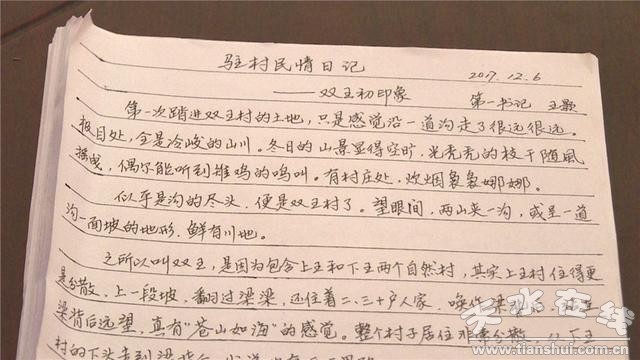 驻村民情日记
2017.12.6
——双王初印象 第一书记 王颢
第一次踏进双王村的土地，只是感觉沿一道沟走了很远很远。
极目处，全是冷峻的山川。冬日的山景显得空旷，光秃秃的枝干随风
摇曳，偶尔能听到雄鸡的鸣叫。有村庄处，炊烟袅袅娜娜。
似乎是沟的尽头，便是双王村了。望眼间，两山夹一沟，或呈一道
沟一面坡的地形，鲜有川地。
之所以叫双王，是因为包含上王和下王两个自然村，其实上王村住得更
是分散，上一段坡，翻过梁梁，还住着二、三十户人家，唤作
梁背后远望，真有“苍山如海”的感觉。整个村子居住非常分散
村的下头走到梁背后
天水在线
www.tianshui.com.cn